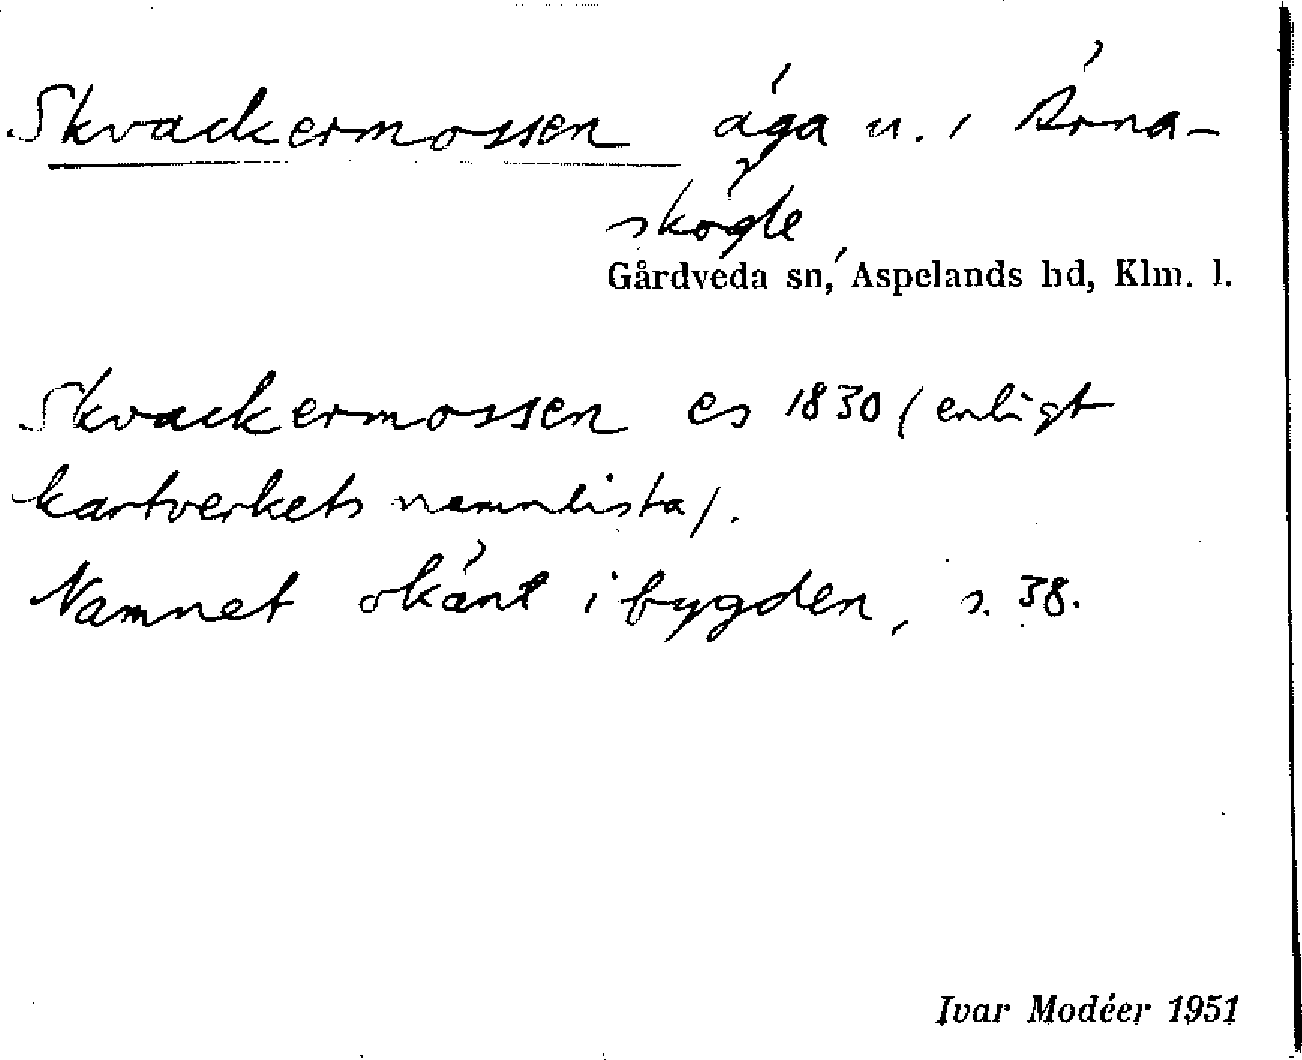 Skvackermossen äga u. i Årna-
skögle
Gårdveda sn, Aspelands hd, Klm. l.
Skvackermossen es 1830 (enligt
kartverkets namnlista).
Namnet okänt i bygden, s. 38.
Ivar Modéer 1951